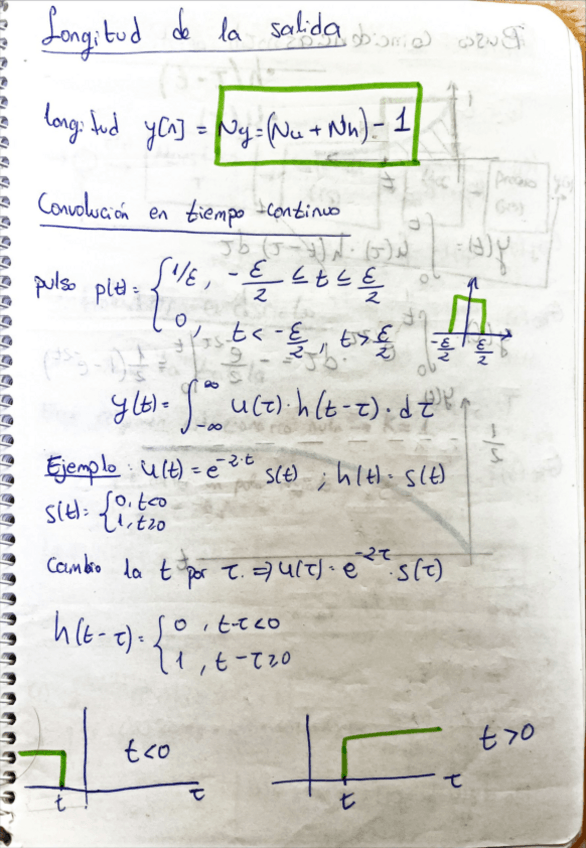 Longitud de la salida
longitud y[n] = Ny=(Nu + Nh) - 1
Convolución en tiempo continuo
pulso p(t)= { 1/ε, -ε/2 ≤ t ≤ ε/2
0, t < -ε/2, t > ε/2
-ε/2 ε/2
y(t)= ∫_{-∞}^{∞} u(τ)·h(t-τ)·dτ
Ejemplo: u(t)=e^{-2·t} s(t) ; h(t)= s(t)
s(t)= { 0, t<0
1, t≥0
Cambio la t por τ. ⇒ u(τ)= e^{-2τ}·s(τ)
h(t-τ)= { 0, t-τ<0
1, t-τ≥0
t<0
t τ
t>0
t τ